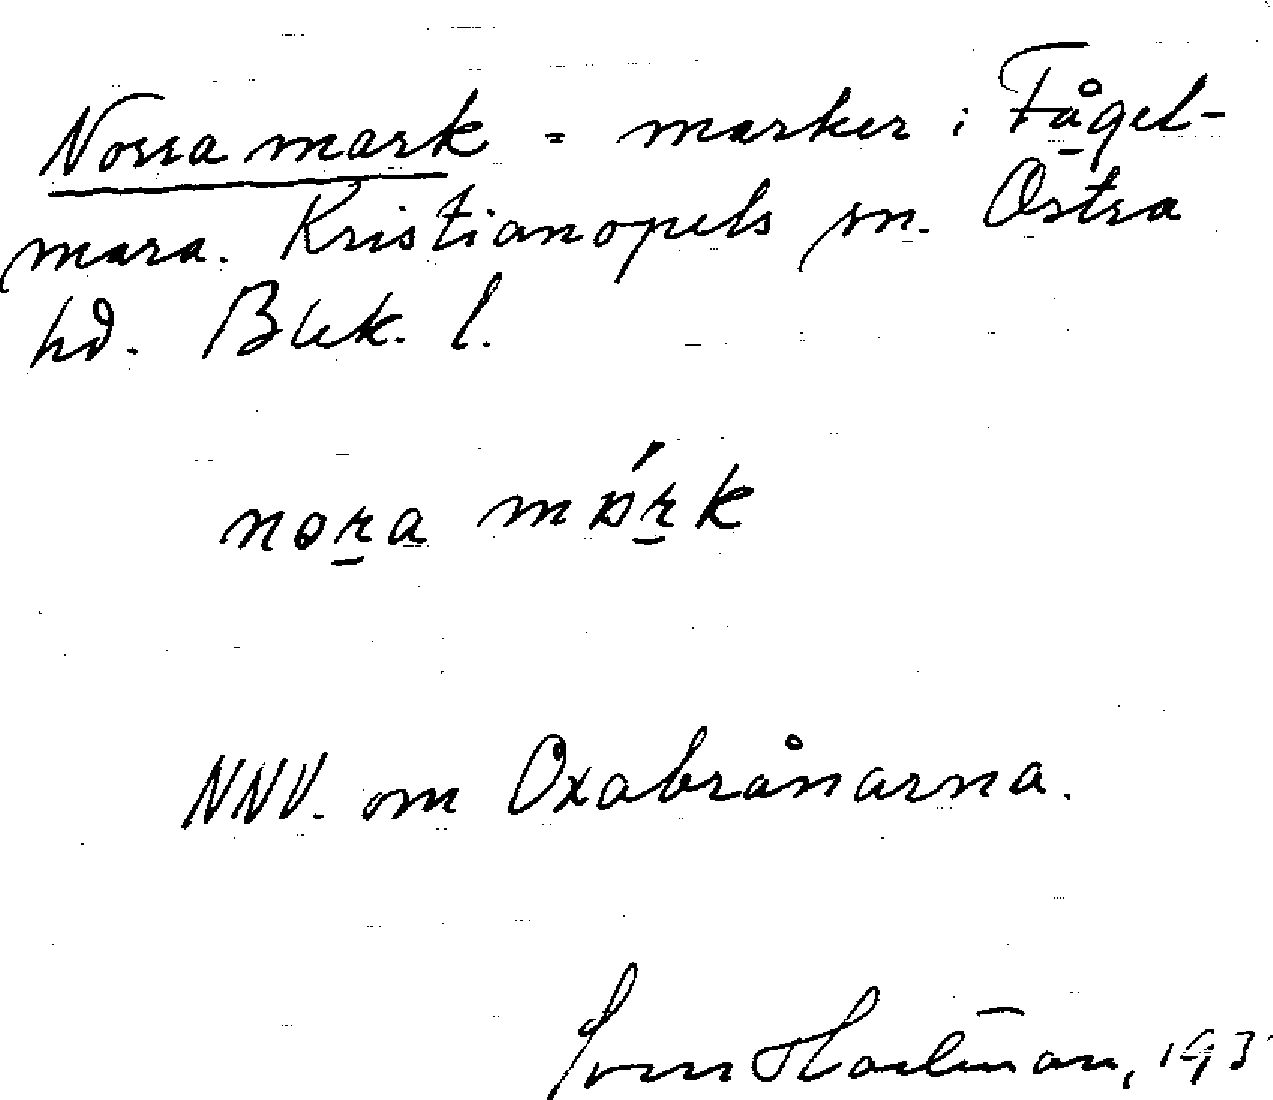 Norra mark = marker i Fågel-
mara. Kristianopels sn. Östra
hd. Blek. l.
nora mɒ́rk
NNV. om Oxabrånarna.
Sven